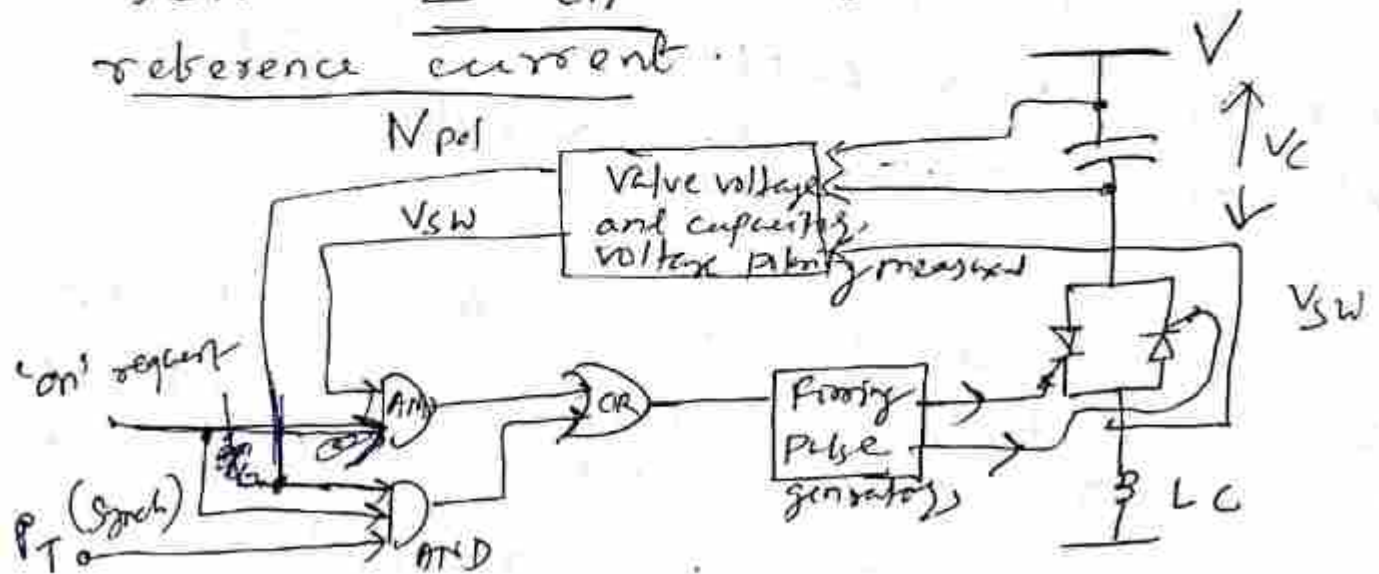 reference current.
V
Npol
Valve voltage
and capacitor,
voltage polarity measured
VC
VSW
VSW
'on' request
AND
OR
Firing
Pulse
generators
PT (Synch)
AND
LC